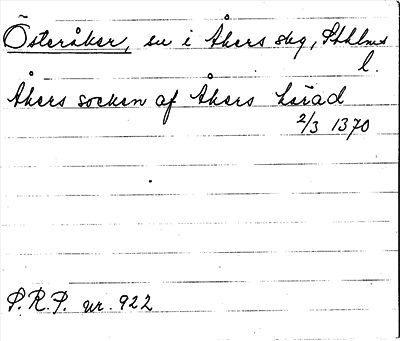 Österåker, sn i Åkers skg, Sthlms
l.
Åkers socken af Åkers härad
2/3 1370
S.R.P. nr. 922